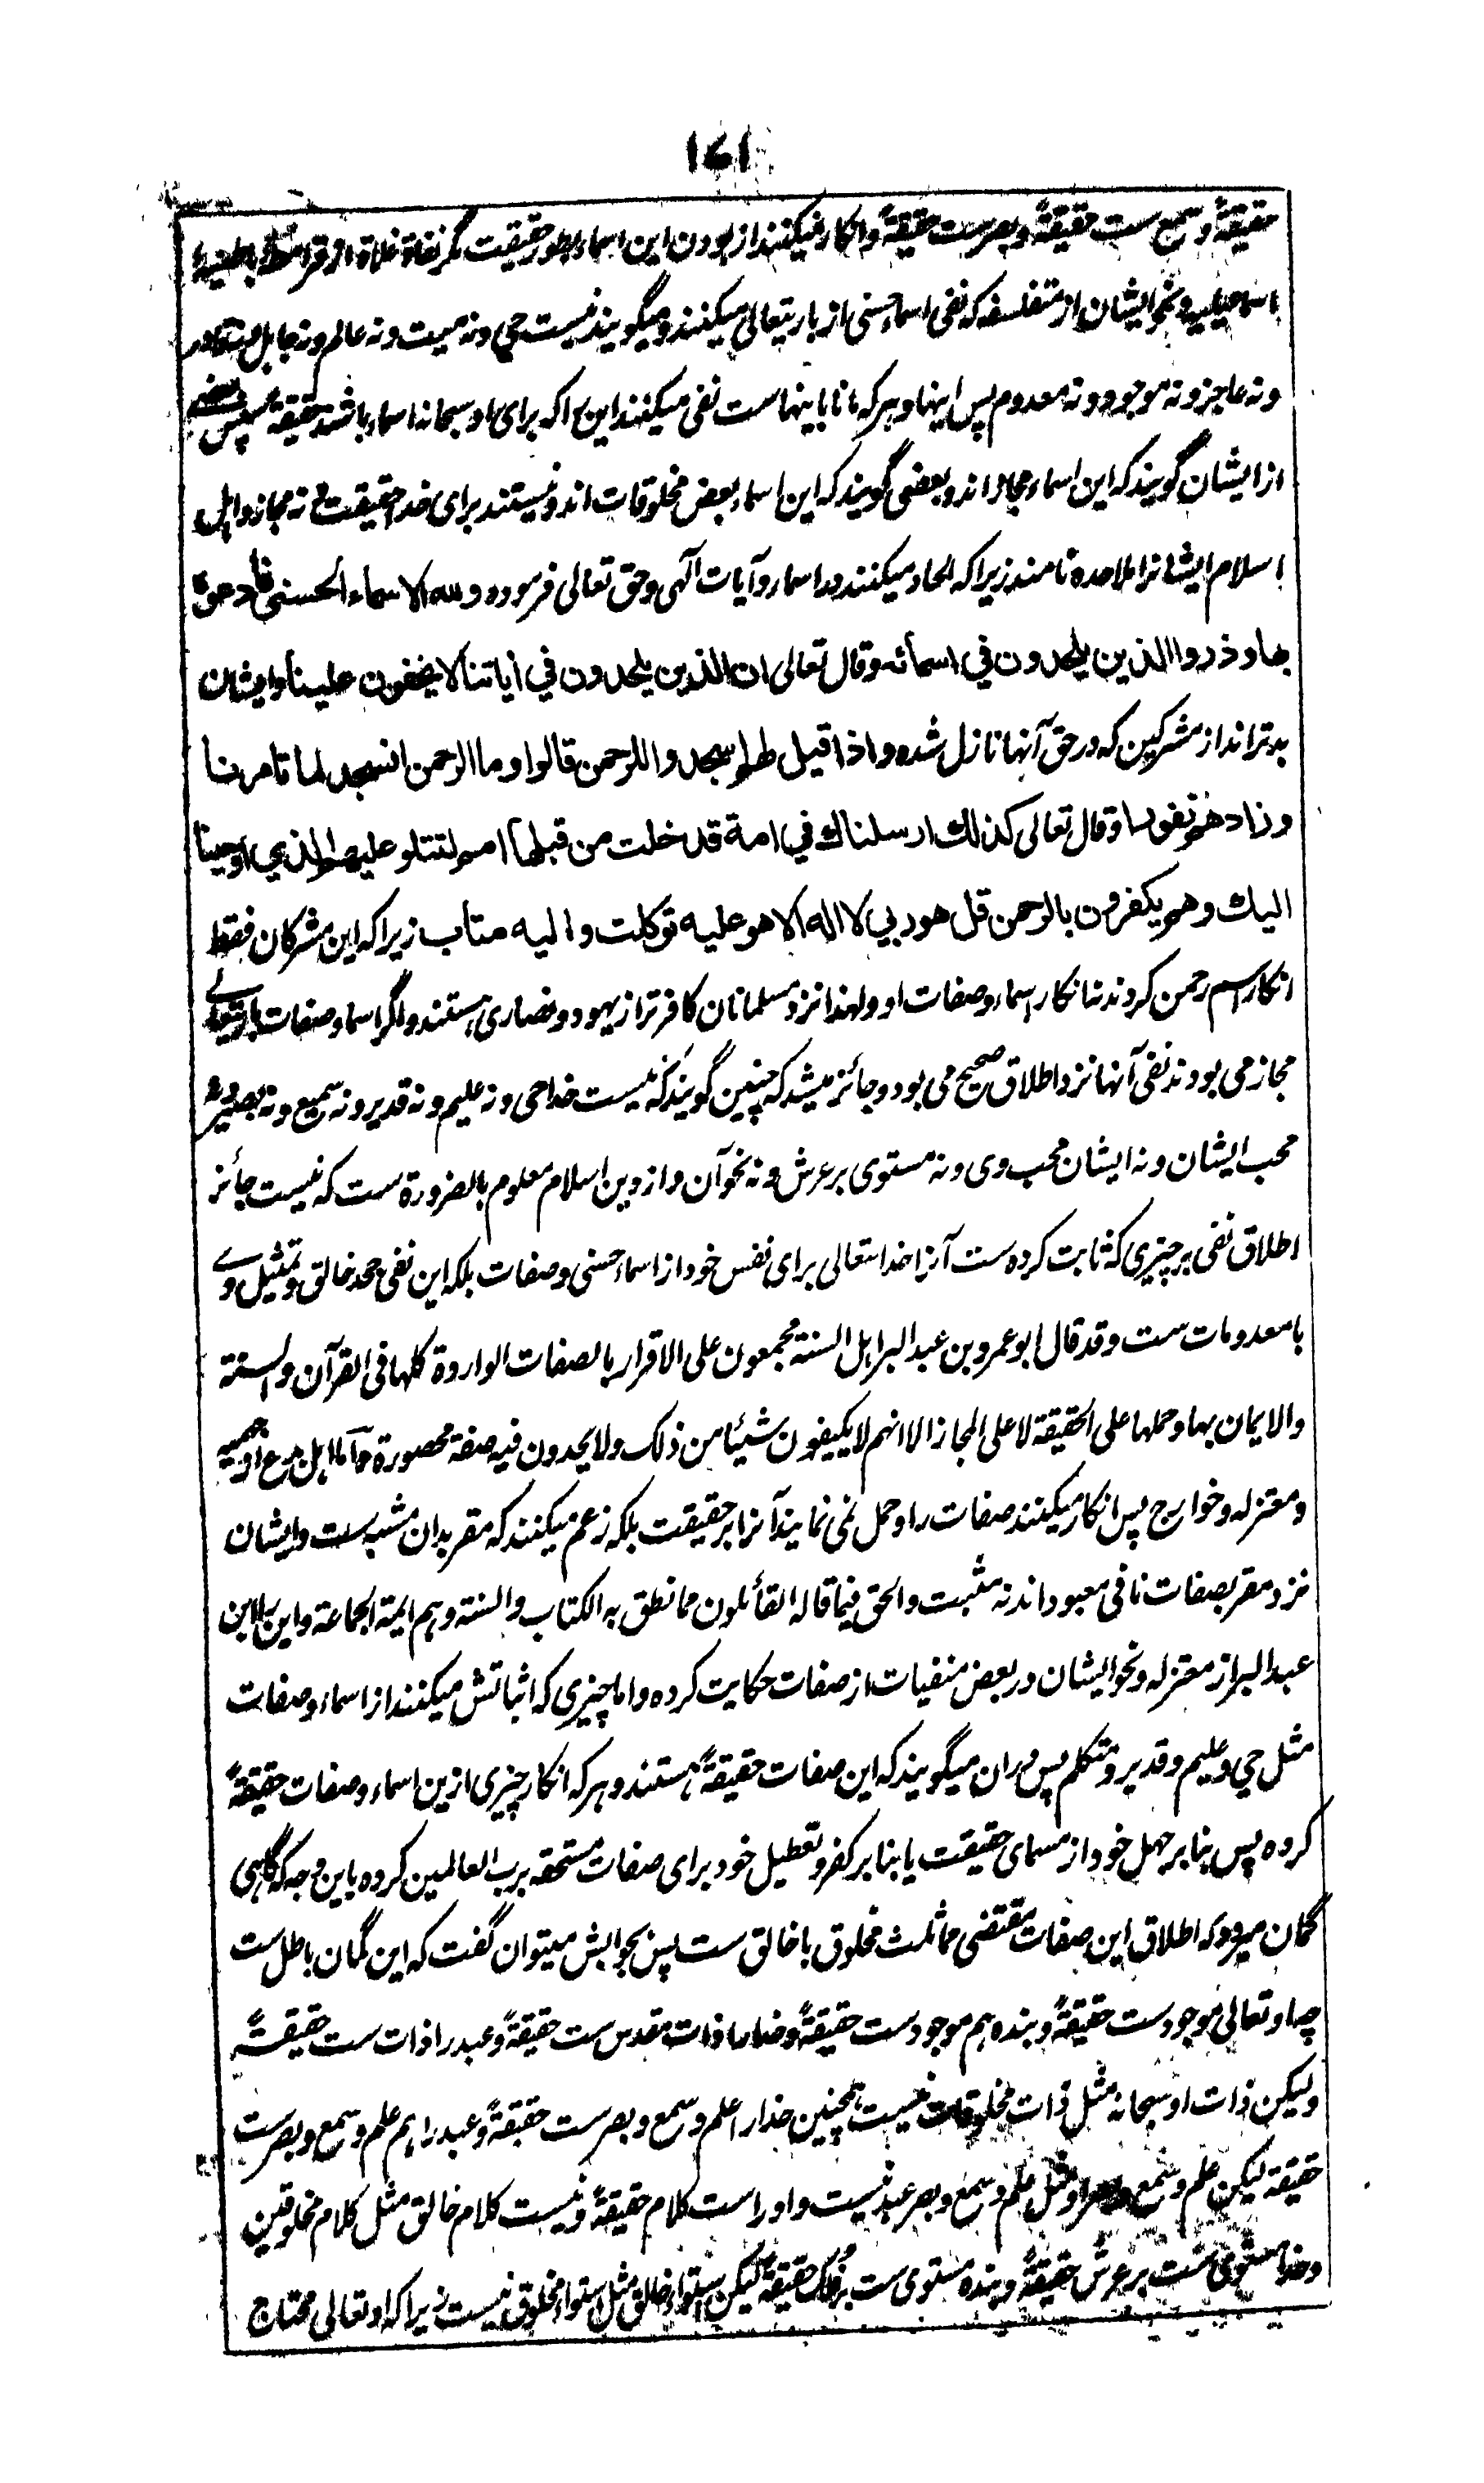 ۱۷۱
حقیقةً و سمیع ست حقیقةً و بصیرست حقیقةً و انکار نمیکنند از بودن این اسماء بطور حقیقت مگر نفاة غلاة از قرامطه باطنیه
اسماعیلیه و نحو ایشان از متفلسفه که نفی اسماء حسنی از باریتعالی میکنند و میگویند نیست حی و نه میت و نه عالم و نه جاهل و نه قادر
و نه عاجز و نه موجود و نه معدوم پس اینها و هر که مانا باینهاست نفی میکنند این را که برای او سبحانه اسماء باشند حقیقةً پس بعضی
از ایشان گویند که این اسماء مجاز اند و بعضی گویند که این اسماء بعض مخلوقات اند و نیستند برای خدا حقیقت و نه مجاز و اهل
اسلام ایشانرا ملاحده نامند زیرا که الحاد میکنند در اسماء و آیات آلهی و حق تعالی فرموده ولله الاسماء الحسنی فادعوه
بها وذروا الذین یلحدون فی اسمائه وقال تعالی ان الذین یلحدون فی اٰیاتنا لا یخفون علینا و ایشان
بدتر اند از مشرکین که در حق آنها نازل شده واذا قیل لهم اسجدوا للرحمن قالوا وما الرحمن انسجد لما تامرنا
وزادهم نفورا وقال تعالی کذلك ارسلناك فی امة قد خلت من قبلها امم لتتلو علیهم الذی اوحینا
الیك وهم یکفرون بالرحمن قل هو ربی لا اله الا هو علیه توکلت والیه متاب زیرا که این مشرکان فقط
انکار اسم رحمن کردند نه انکار اسماء و صفات او و لهذا نزد مسلمانان کافرتر از یهود و نصاری هستند و اگر اسما و صفات باریتعالے
مجاز می بودند نفی آنها نزد اطلاق صحیح می بود و جائز میشد که چنین گویند که نیست خدا حی و نه علیم و نه قدیر و نه سمیع و نه بصیر و نه
محب ایشان و نه ایشان محب وی و نه مستوی بر عرش و نه نحو آن و از دین اسلام معلوم بالضرورة ست که نیست جائز
اطلاق نفی بر چیزی که ثابت کرده ست آنرا خدا تعالی برای نفس خود از اسماء حسنی و صفات بلکه این نفی جحد خالق و تمثیل وے
با معدومات ست وقد قال ابو عمرو بن عبد البر اهل السنة مجمعون علی الاقرار بالصفات الواردة کلها فی القرآن والسنة
والایمان بها وحملها علی الحقیقة لا علی المجاز الا انهم لا یکیفون شیئا من ذلک ولا یحدون فیه صفة محصورة و اما اهل بدع از جهمیه
و معتزله و خوارج پس انکار میکنند صفات را و حمل نمی نمایند آنرا بر حقیقت بلکه زعم میکنند که مقر بدان مشبه ست و ایشان
نزد مقر بصفات نافی معبود اند نه مثبت والحق فیما قاله القائلون مما نطق به الکتاب والسنة وهم ایمة الجماعة و این را ابن
عبد البر از معتزله و نحو ایشان در بعض منفیات از صفات حکایت کرده و اما چیزی که اثباتش میکنند از اسماء و صفات
مثل حی و علیم و قدیر و متکلم پس دران میگویند که این صفات حقیقةً هستند و هر که انکار چیزی ازین اسماء و صفات حقیقةً
کرده پس بنا بر جهل خود از مسمای حقیقت یا بنا بر کفر و تعطیل خود برای صفات مستحقه برب العالمین کرده باین وجه که گاهی
گمان میرود که اطلاق این صفات مقتضی مماثلت مخلوق با خالق ست پس بجوابش میتوان گفت که این گمان باطل ست
چه او تعالی موجود ست حقیقةً و بنده هم موجود ست حقیقةً و خدا را ذات مقدس ست حقیقةً و عبد را ذات ست حقیقةً
و لیکن ذات او سبحانه مثل ذات مخلوقات نیست همچنین خدا را علم و سمع و بصر ست حقیقةً و عبد را هم علم و سمع و بصر ست
حقیقة لیکن علم و سمع و بصر او مثل علم و سمع و بصر عبد نیست و او راست کلام حقیقةً و نیست کلام خالق مثل کلام مخلوقین
و خدا مستوی ست بر عرش حقیقةً و بنده مستوی ست بر فلک حقیقةً لیکن استواء خالق مثل استواء مخلوق نیست زیرا که او تعالی محتاج